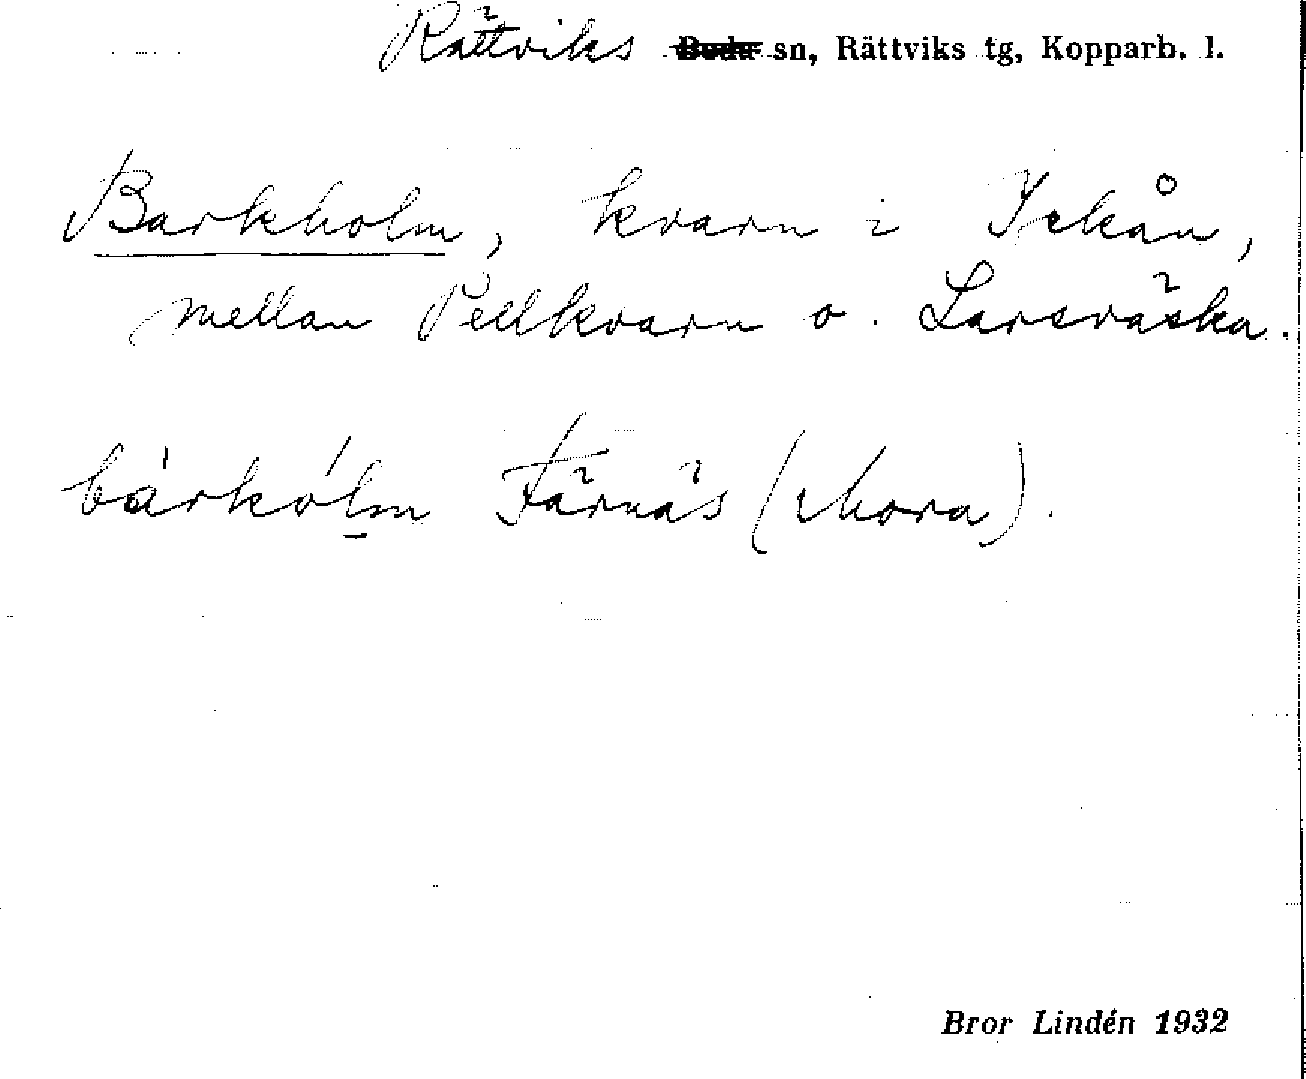 Rättviks Boda sn, Rättviks tg, Kopparb. l.
Barkholm, kvarn i Ickån,
mellan Pellkvarn o. Larsväska.
bárkólm Färnäs (Mora).
Bror Lindén 1932